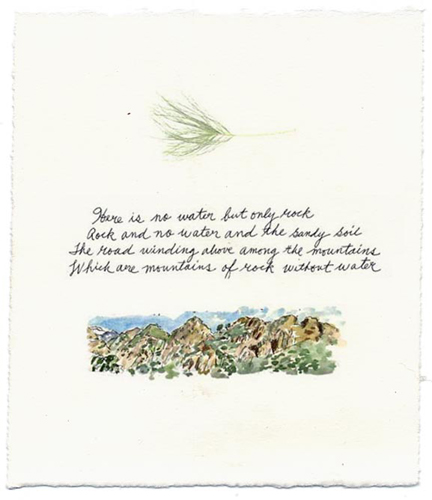 Here is no water but only rock
Rock and no water and the sandy soil
The road winding above among the mountains
Which are mountains of rock without water